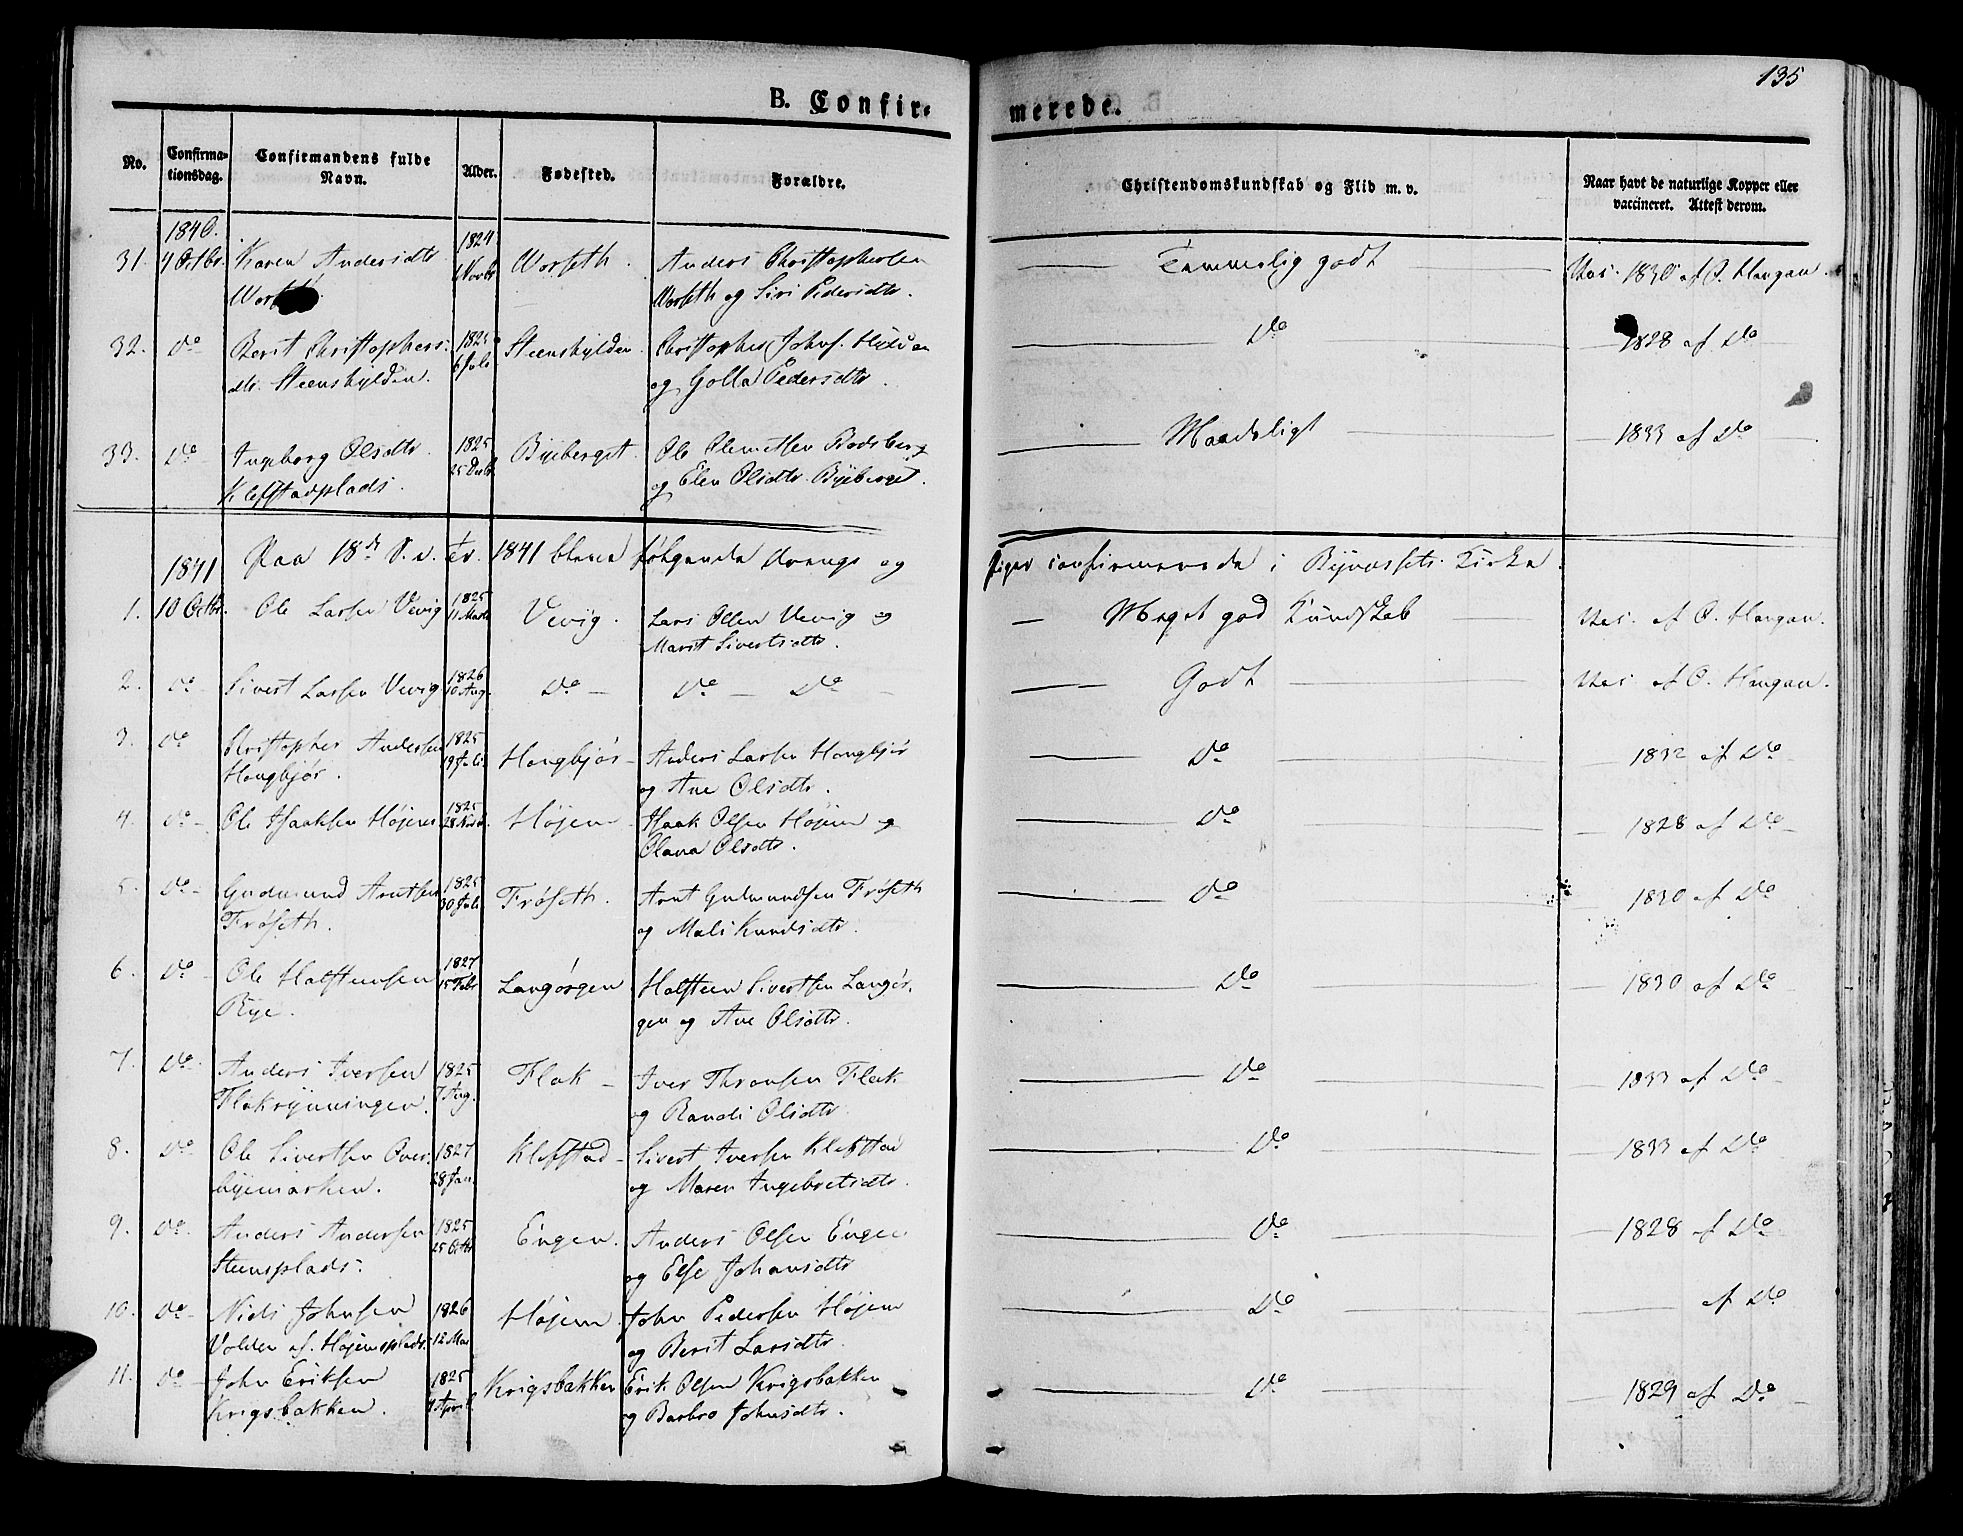 135
B. Confir-
merede.
No.
Confirma-
tionsdag.
Confirmandens fulde
Navn.
Alder.
Fødested.
Forældre.
Christendomskundskab og Flid m. v.
Naar havt de naturlige Kopper eller
vaccineret. Attest derom.
1840.
31. 4 Octbr. Karen Andersdtr 1824 Worseth. Anders Christophersen Temmelig godt Vac. 1830 af O. Haugan.
Worseth og Siri Pedersdtr.
32. Do Berit Christophers- 1825 Steenshylden Christopher Johns. Do 1828 af Do
dtr. Steenshylden. 6 Juli og Golla Pedersdtr.
33. Do Ingeborg Olsdtr. 1825 Byeberget. Ole Clemetsen Maadeligt 1833 af Do
Klefstadplads. 25 og Elen Olsdtr. Byeberget.
1841 Paa 18de S. e. Tr. 1841 bleve følgende Drenge og
Piger confirmerede i Bynessets Kirke.
1. 10 Octbr. Ole Larsen Vevig 1825 Vevig. Lars Olsen Vevig og Meget god Kundskab Vac. af O. Haugan.
Marit Sivertsdtr.
2. Do Sivert Larsen Vevig 1826 Do Do Do Godt Vac. af O. Haugan.
10 Aug.
3. Do Christopher Andersen 1825 Hongbjør Anders Larsen Hongbjør Do 1832 af Do
Hongbjør. 19 Juli og Ane Olsdtr.
4. Do Ole Isaaksen Højem 1825 Højem Isaak Olsen Højem og Do 1828 af Do
Olava Olsdtr.
5. Do Gudmund Arntsen 1825 Frøseth. Arnt Gudmundsen Frøseth Do 1830 af Do
Frøseth. 30 Juli og Mali Knudsdtr.
6. Do Ole Halsteensen 1827 Langørgen Halsteen Sivertsen Langør- Do 1830 af Do
Bye. 15 Febr gen og Ane Olsdtr.
7. Do Anders Iversen 1825 Flak Iver Thronsen Flak Do 1833 af Do
Flakrynningen. 7 Aug. og Randi Olsdtr.
8. Do Ole Sivertsen Over- 1827 Klefstad Sivert Iversen Klefstad Do 1833 af Do
byemarken. 28 Jan. og Maren Ingebretsdtr.
9. Do Anders Andersen 1825 Engen. Anders Olsen Engen Do 1828 af Do
Steensplads. 25 Octbr og Else Johansdtr
10. Do Niels Johnsen 1826 Højem John Pedersen Højem Do af Do
Volden af Højemsplads. 12 Mai og Berit Larsdtr.
11. Do John Eriksen 1825 Krigsbakken Erik Olsen Krigsbakken Do 1829 af Do
Krigsbakken. April og Barbro Johnsdtr.